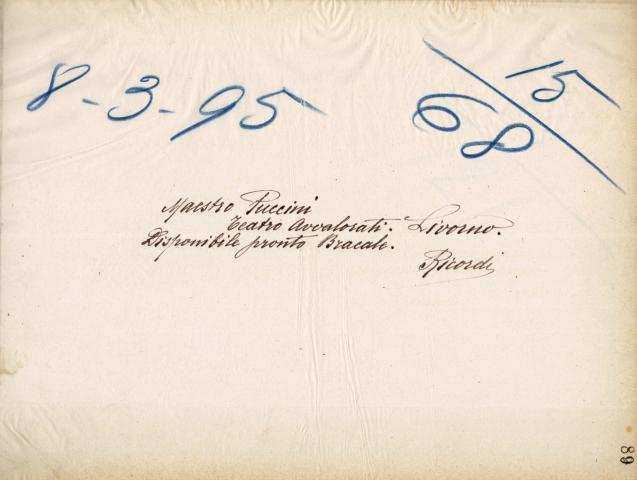 8-3-95
15
68
Maestro Puccini
Teatro Avvalorati. Livorno.
Disponibile pronto Bracale.
Ricordi
68